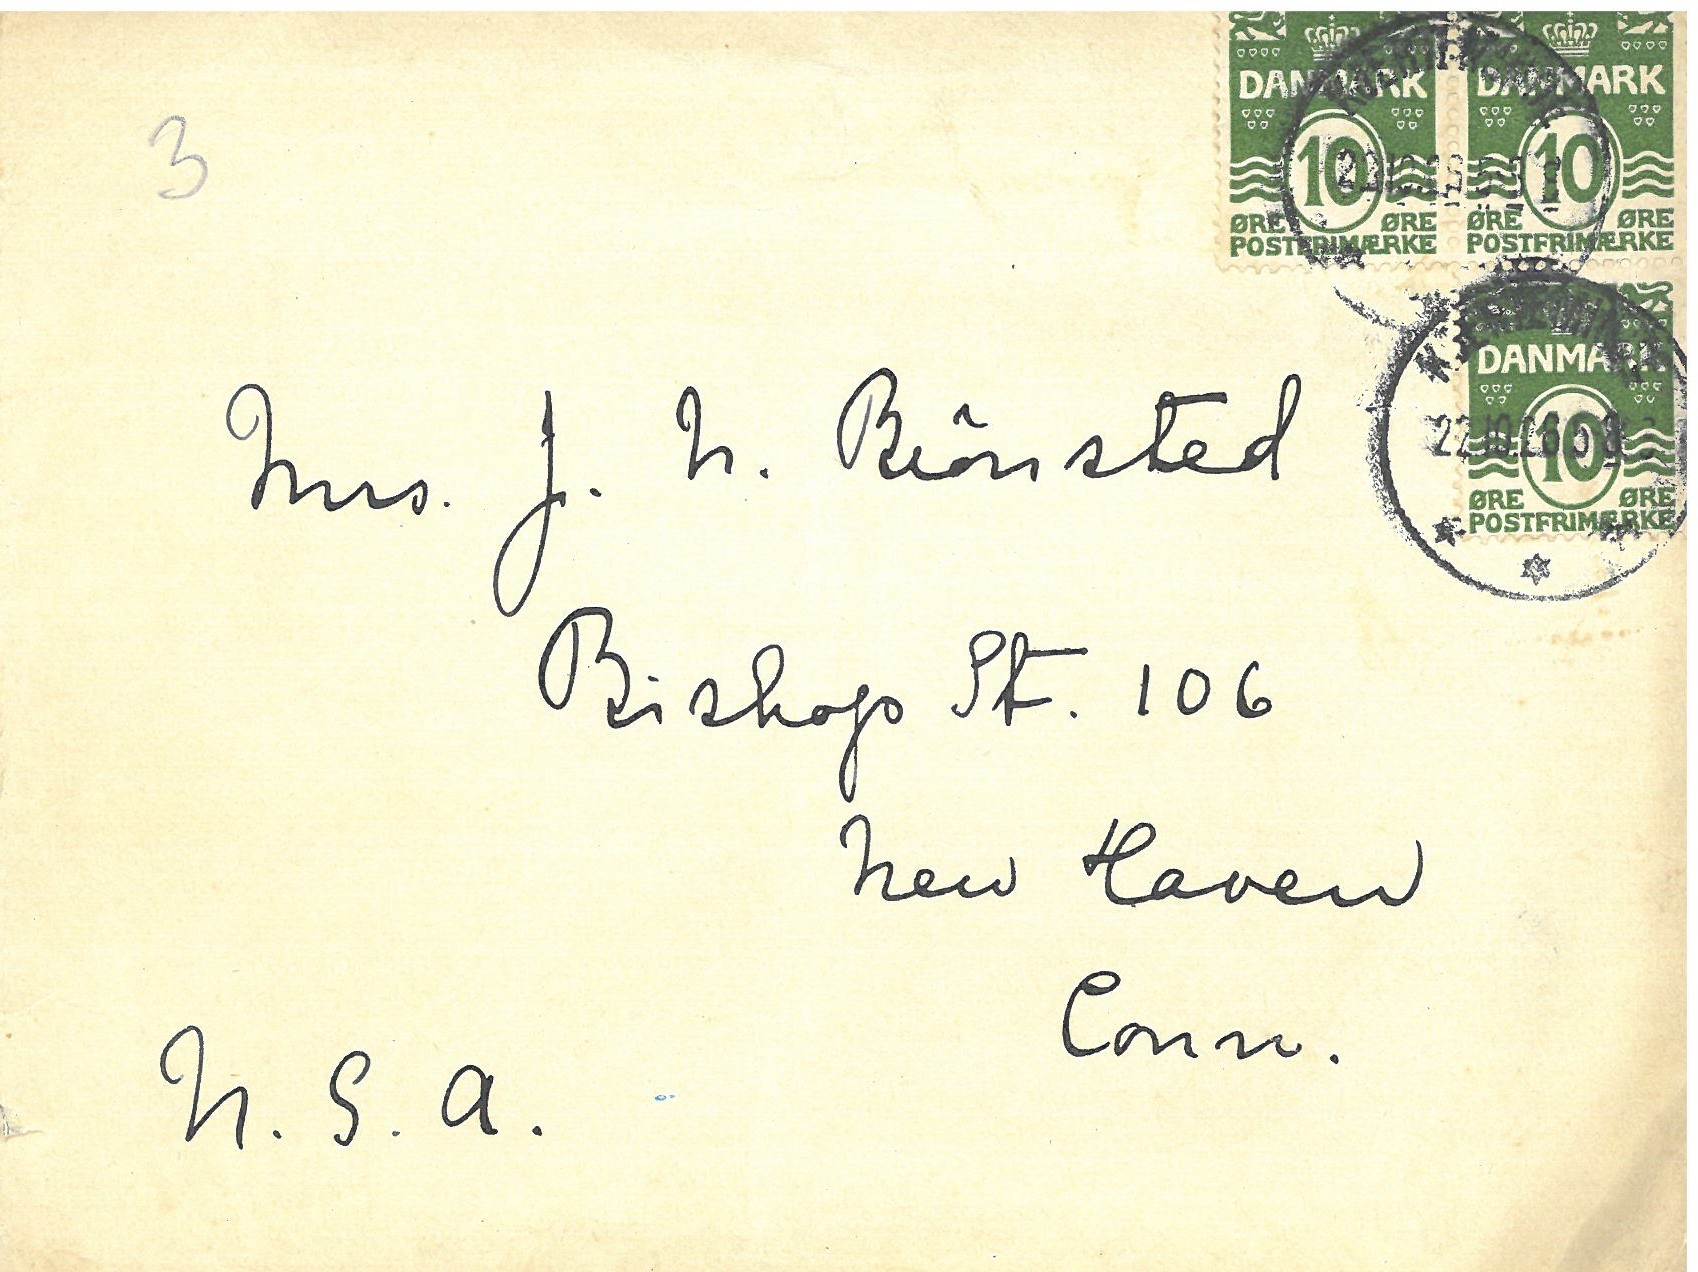 3
DANMARK DANMARK
10 10
ØRE ØRE ØRE ØRE
POSTFRIMÆRKE POSTFRIMÆRKE
DANMARK
22.10.26
10
ØRE ØRE
POSTFRIMÆRKE
Mrs. J. N. Brönsted
Bishop St. 106
New Haven
Conn.
U. S. A.